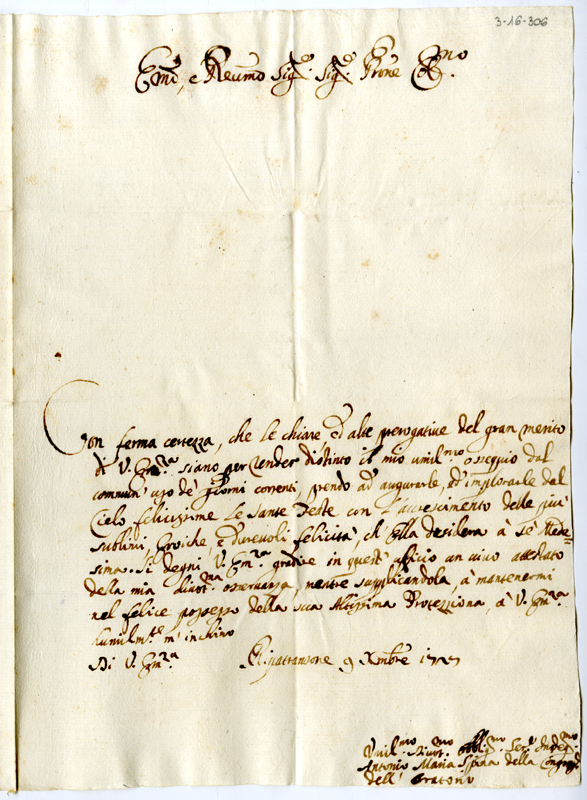 3-16-306
Emo, e Reumo Sigre. Sigre. Prone Colmo.
Con ferma certezza, che le chiare, ed alte prerogative del gran merito
di V. Emza siano per render distinto il mio umilmo ossequio dal
commun' uso de' giorni correnti, prendo ad' augurarle, ed' implorarle dal
Cielo felicissime le Sante Feste con l'accrescimento delle più
sublimi, Eroiche, e durevoli felicità, ch' Ella desidera à se Mede=
sima. Si degni V. Emza gradire in quest' ufficio un vivo attestato
della mia divotma osservanza, mentre supplicandola, à mantenermi
nel felice possesso della sua Altissima Protezzione, à V. Emza
humilmte m' inchino
Di V. Emza Ripatransone 9 Xmbre
Umilmo Divotmo Obbligmo Serv.
Antonio Maria Spina della Congregne
dell' Oratorio